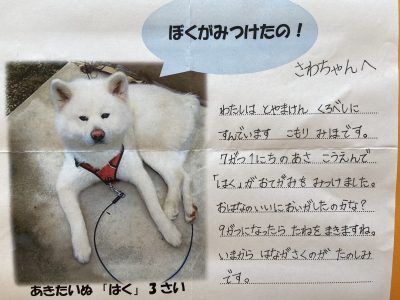 ぼくがみつけたの！
さわちゃんへ
わたしは とやまけん くろべしに
すんでいます こもり みほです。
7がつ1にちのあさ こうえんで
「はく」が おてがみを みつけました。
おはなのいいにおいがしたのかな？
9がつになったら たねをまきますね。
いまから はながさくのが たのしみ
です。
あきたいぬ 「はく」 3さい